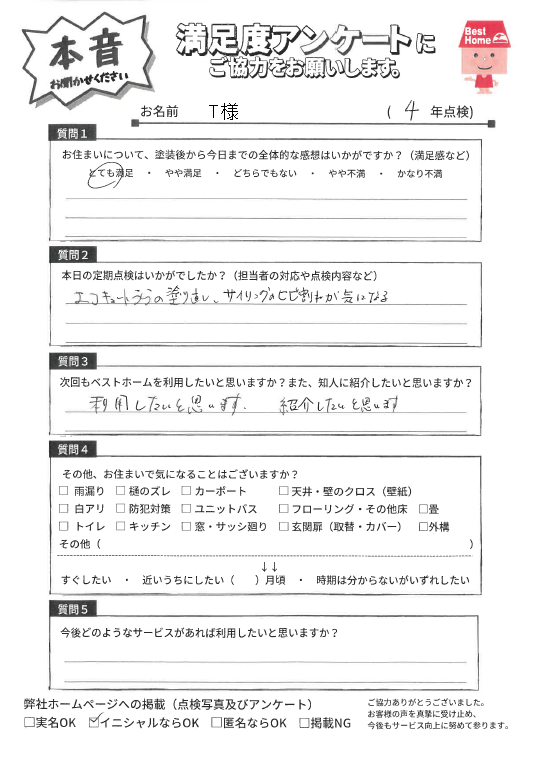 本音
お聞かせください
満足度アンケートに
ご協力をお願いします。
Best Home
お名前 T様 ( 4 年点検)
質問1
お住まいについて、塗装後から今日までの全体的な感想はいかがですか？（満足感など）
とても満足 ・ やや満足 ・ どちらでもない ・ やや不満 ・ かなり不満
質問2
本日の定期点検はいかがでしたか？（担当者の対応や点検内容など）
エコキュートうらの塗り直し、サイリングのヒビ割れが気になる
質問3
次回もベストホームを利用したいと思いますか？また、知人に紹介したいと思いますか？
利用したいと思います。 紹介したいと思います
質問4
その他、お住まいで気になることはございますか？
☐ 雨漏り ☐ 樋のズレ ☐ カーポート ☐ 天井・壁のクロス（壁紙）
☐ 白アリ ☐ 防犯対策 ☐ ユニットバス ☐ フローリング・その他床 ☐畳
☐ トイレ ☐ キッチン ☐ 窓・サッシ廻り ☐ 玄関扉（取替・カバー） ☐外構
その他（ ）
↓↓
すぐしたい ・ 近いうちにしたい（ ）月頃 ・ 時期は分からないがいずれしたい
質問5
今後どのようなサービスがあれば利用したいと思いますか？
弊社ホームページへの掲載（点検写真及びアンケート）
☐実名OK ☑イニシャルならOK ☐匿名ならOK ☐掲載NG
ご協力ありがとうございました。
お客様の声を真摯に受け止め、
今後もサービス向上に努めて参ります。